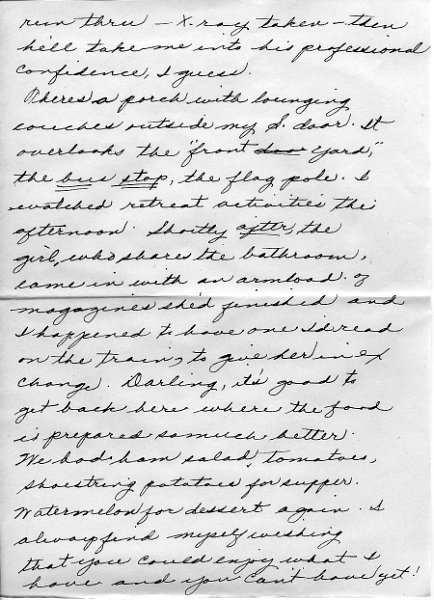 run thru – X-ray taken – then
he'll take me into his professional
confidence, I guess.
There's a porch with lounging
couches outside my S. door. It
overlooks the "front door yard,"
the bus stop, the flag pole. I
watched retreat activities this
afternoon. Shortly after, the
girl, who shares the bathroom,
came in with an armload of
magazines she'd finished and
I happened to have one I'd read
on the train, to give her in ex
change. Darling, it's good to
get back here where the food
is prepared so much better.
We had ham salad, tomatoes,
shoestring potatoes for supper.
Watermelon for dessert again. I
always find myself wishing
that you could enjoy what I
have and you can't have yet!